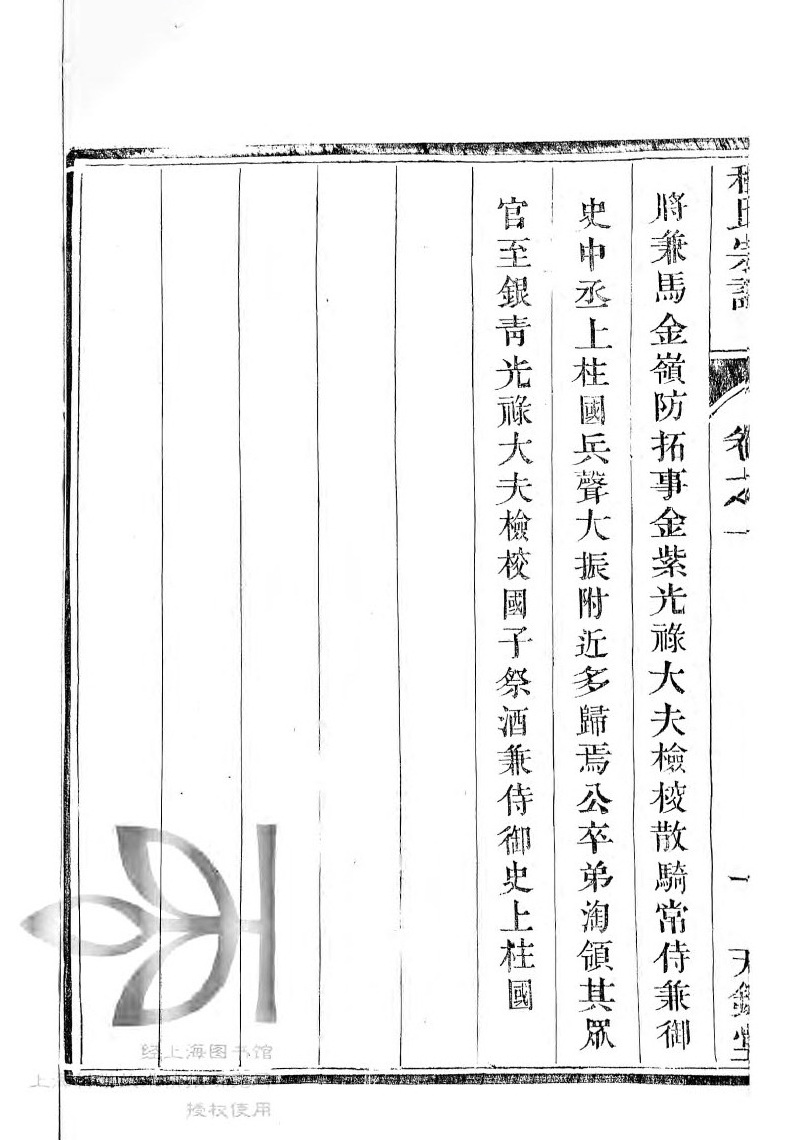 將兼馬金嶺防拓事金紫光祿大夫檢校散騎常侍兼御
史中丞上柱國兵聲大振附近多歸焉公卒弟淘領其眾
官至銀青光祿大夫檢校國子祭酒兼侍御史上柱國
氏宗譜
卷之一
一
经上海图书馆
上
授权使用